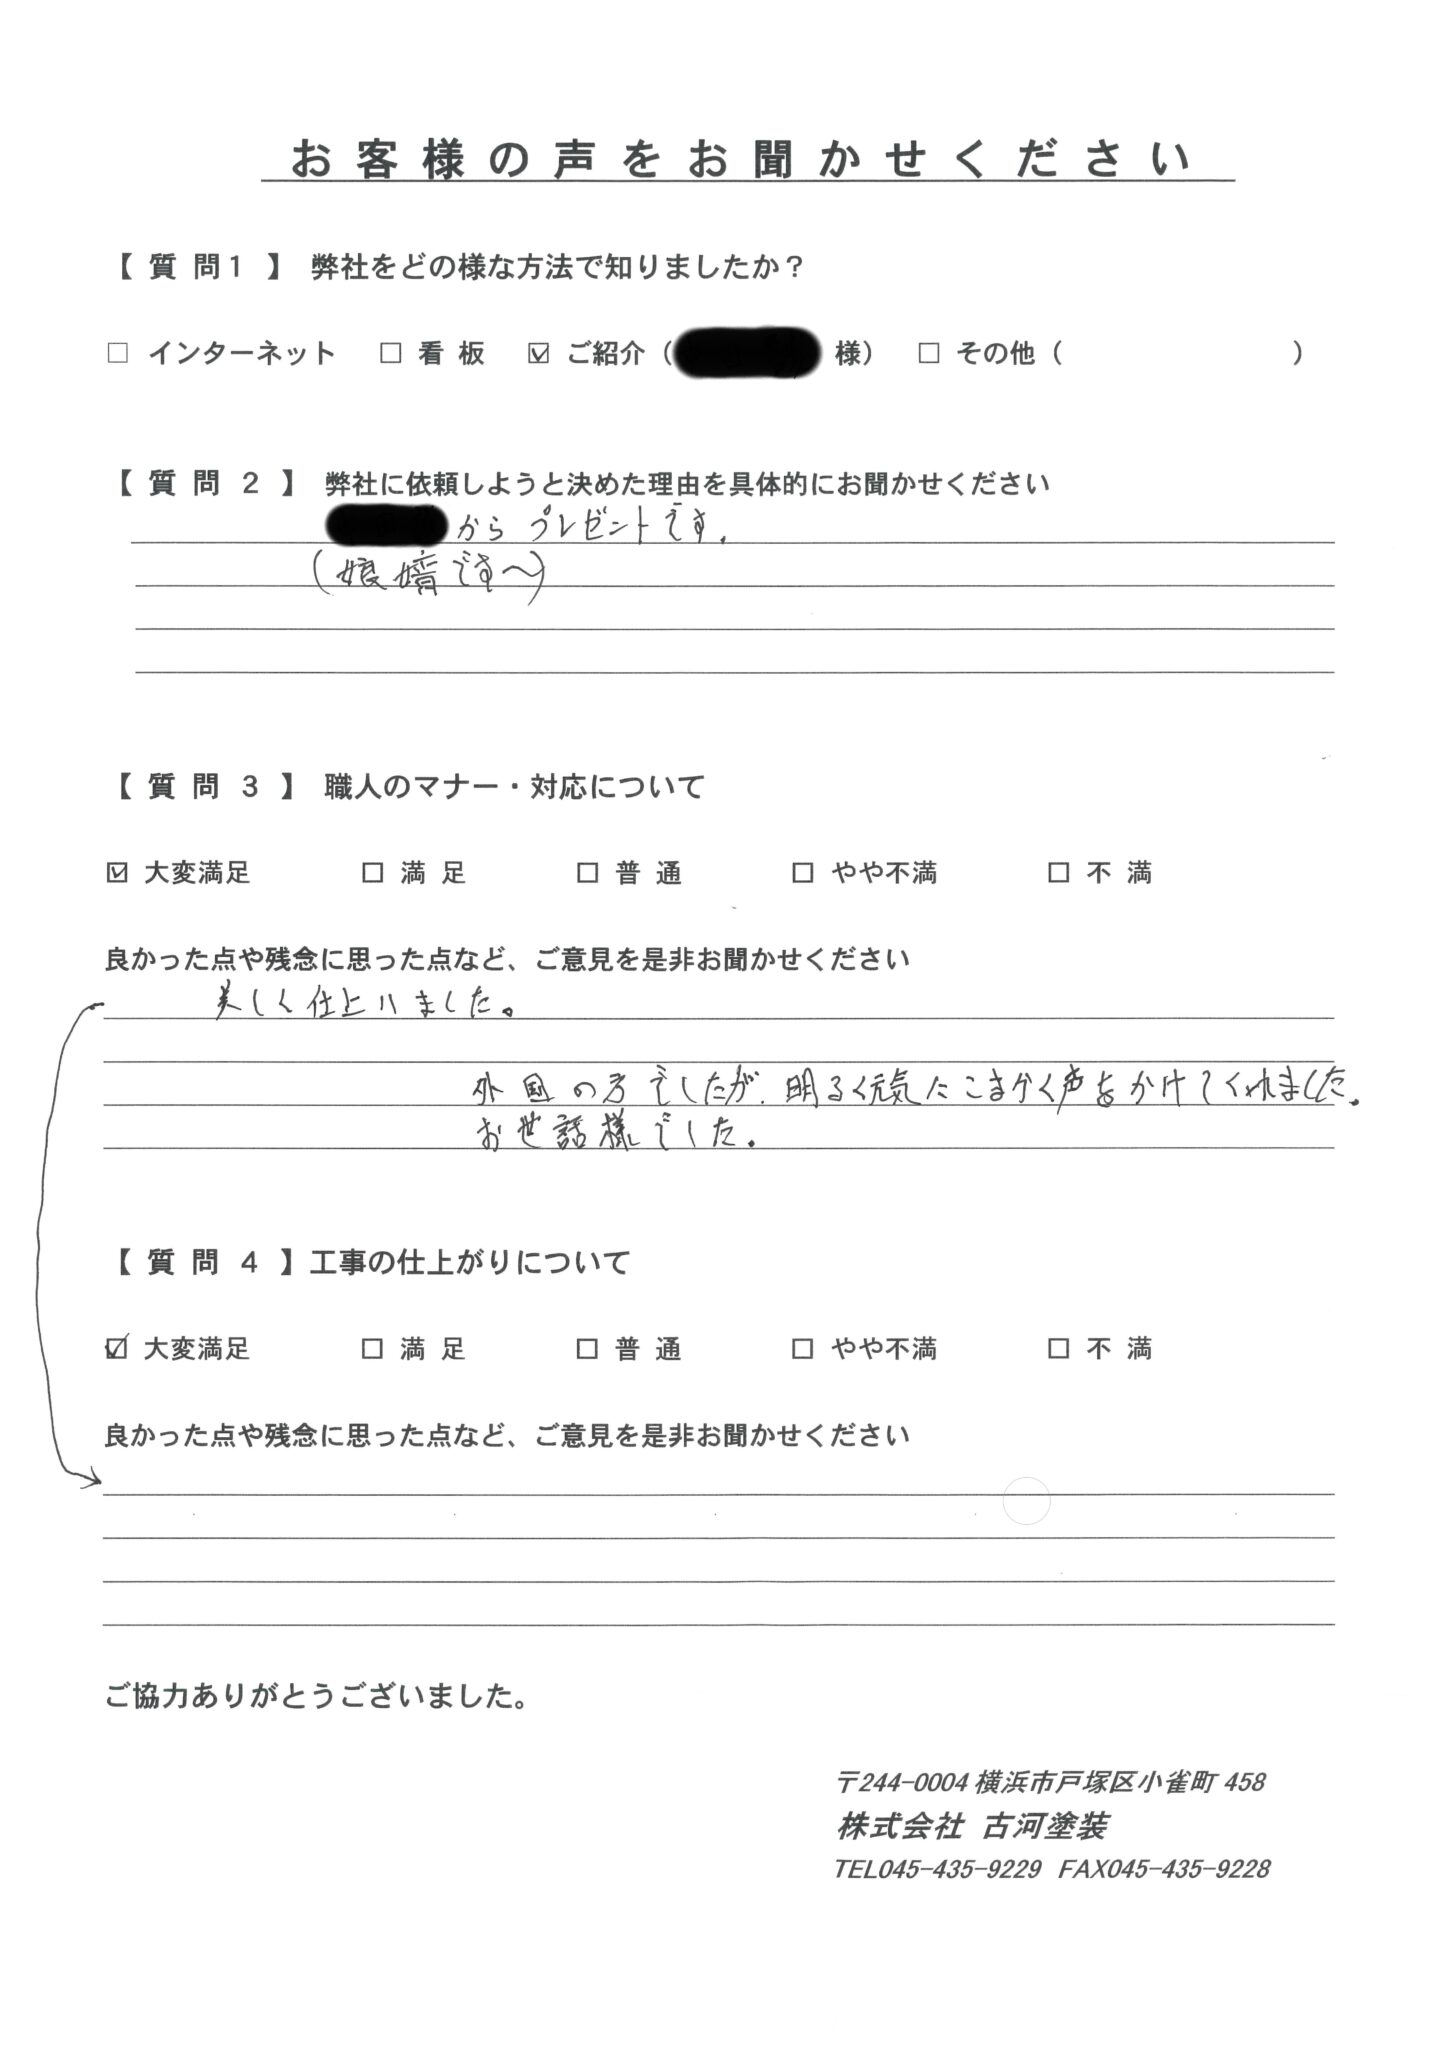 お客様の声をお聞かせください
【 質 問1 】 弊社をどの様な方法で知りましたか？
□ インターネット □ 看 板 ☑ ご紹介（ 様） □ その他（ ）
【 質 問 2 】 弊社に依頼しようと決めた理由を具体的にお聞かせください
から プレゼントです.
(娘婿です〜)
【 質 問 3 】 職人のマナー・対応について
☑ 大変満足 □ 満 足 □ 普 通 □ やや不満 □ 不 満
良かった点や残念に思った点など、ご意見を是非お聞かせください
美しく仕上りました。
外国の方でしたが、明るく元気にこまかく声をかけてくれました。
お世話様でした。
【 質 問 4 】工事の仕上がりについて
☑ 大変満足 □ 満 足 □ 普 通 □ やや不満 □ 不 満
良かった点や残念に思った点など、ご意見を是非お聞かせください
ご協力ありがとうございました。
〒244-0004 横浜市戸塚区小雀町 458
株式会社 古河塗装
TEL045-435-9229 FAX045-435-9228